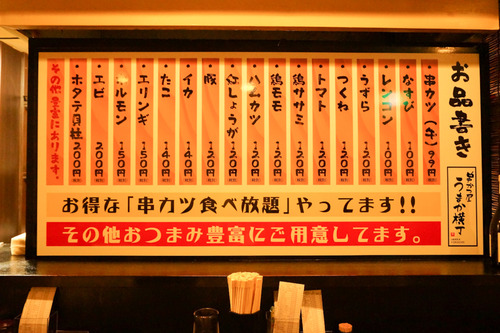 お品書き
串カツ(牛) 90円
なすび 100円
レンコン 100円
うずら 120円
つくね 120円
トマト 120円
鶏ササミ 120円
鶏モモ 120円
ハムカツ 120円
紅しょうが 120円
豚 120円
イカ 140円
たこ 140円
エリンギ 150円
ホルモン 150円
エビ 200円
ホタテ貝柱 200円
その他豊富にあります。
うまか横丁
お得な「串カツ食べ放題」やってます!!
その他おつまみ豊富にご用意してます。